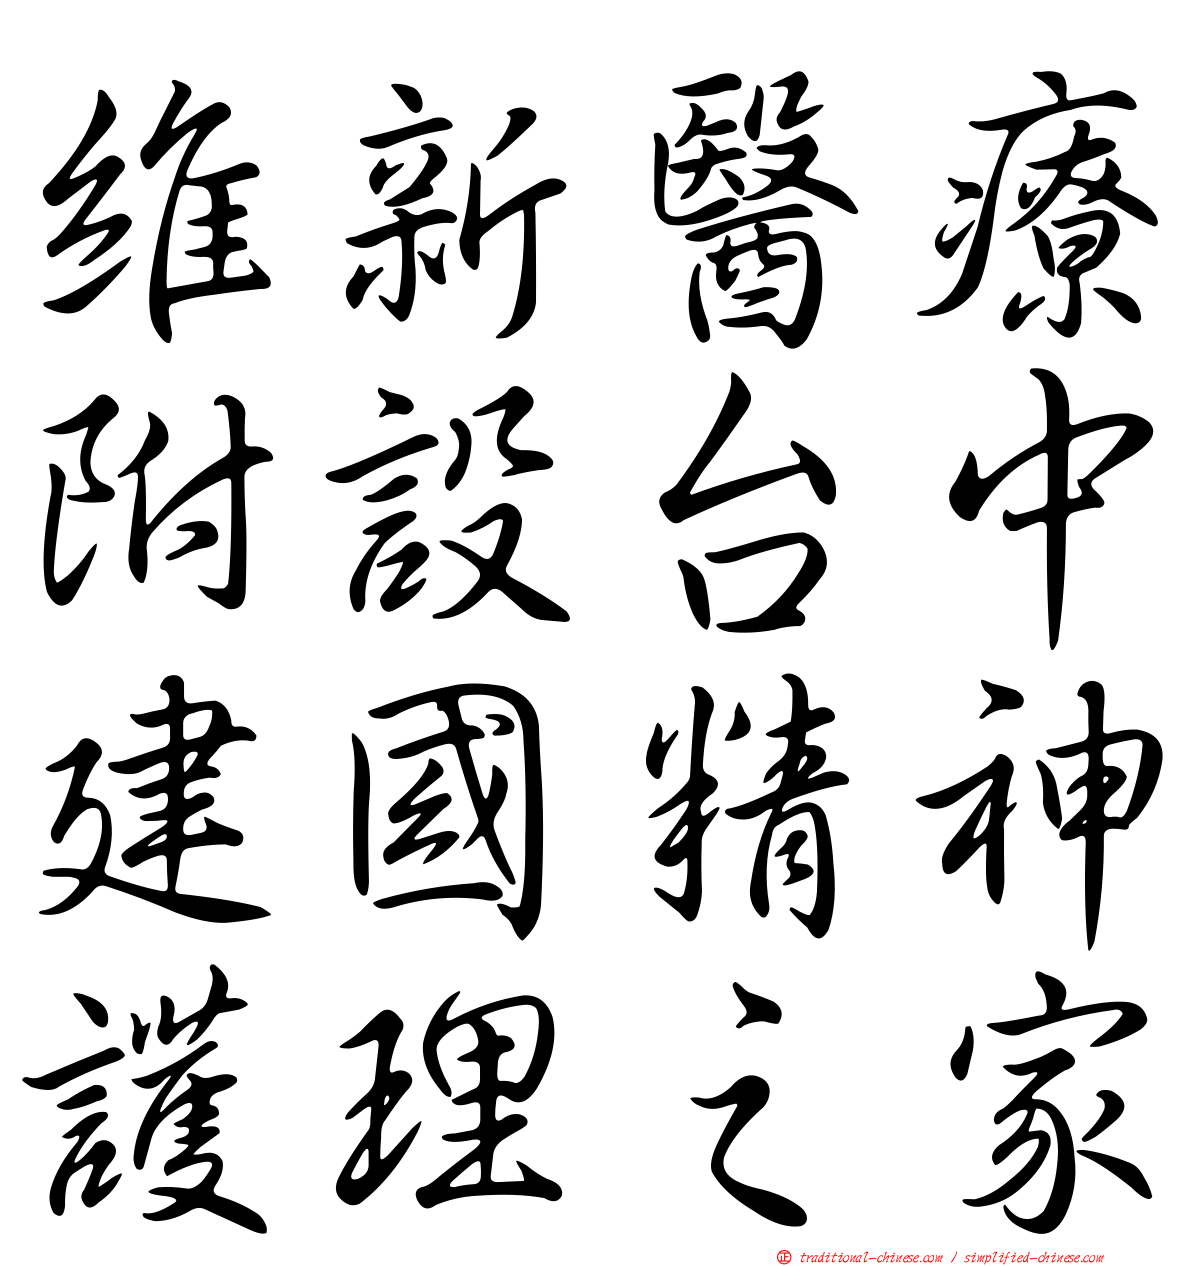 維新醫療
附設台中
建國精神
護理之家
正 traditional-chinese.com / simplified-chinese.com